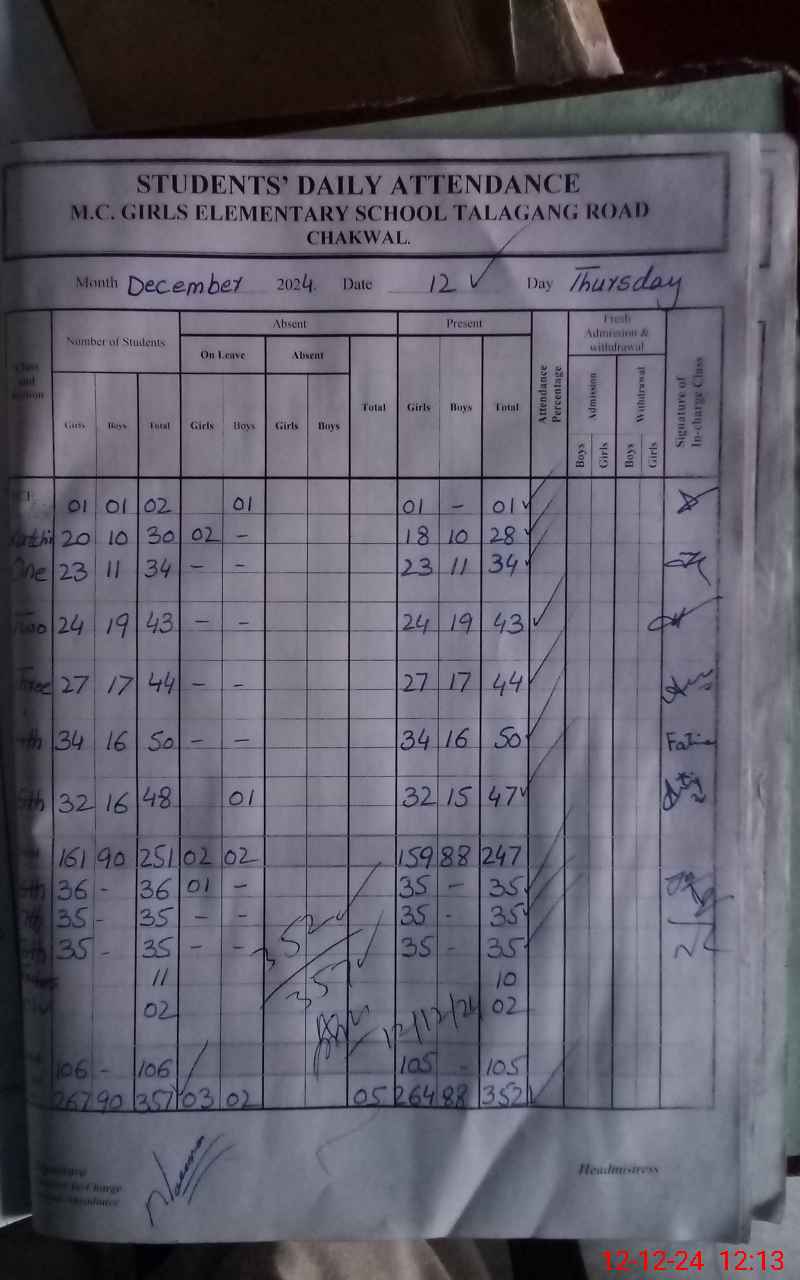 STUDENTS' DAILY ATTENDANCE
M.C. GIRLS ELEMENTARY SCHOOL TALAGANG ROAD
CHAKWAL.
Month December 2024. Date 12 ✓ Day Thursday
Class and Number of Students Absent Present Attendance Percentage Fresh Admission & withdrawal Signature of In-charge Class
On Leave Absent Total Admission Withdrawal
Girls Boys Total Girls Boys Girls Boys Girls Boys Total Boys Girls Boys Girls
01 01 02 01 01 - 01 ✓
20 10 30 02 - 18 10 28 ✓
One 23 11 34 - - 23 11 34 ✓
Two 24 19 43 - - 24 19 43 ✓
Three 27 17 44 - - 27 17 44 ✓
4th 34 16 50 - - 34 16 50 ✓
5th 32 16 48 01 32 15 47 ✓
161 90 251 02 02 159 88 247
6th 36 - 36 01 - 35 - 35 ✓
7th 35 - 35 - - 35 - 35 ✓
8th 35 - 35 - - 35 - 35 ✓
352 ✓
357 ✓
11 10
02 02
12/12/24
106 - 106 105 - 105
267 90 357 03 02 05 264 88 352 ✓
Naeema
Headmistress
12-12-24 12:13